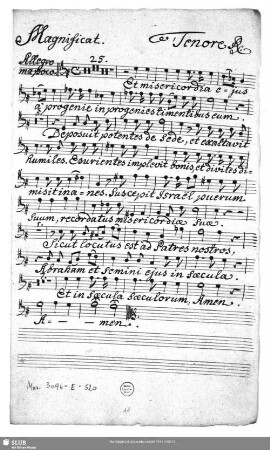 Magnificat. Tenore
Allegro
ma poco.
25.
Et misericordia e-jus
a progenie in progenies timentibus eum.
Deposuit potentes de sede, et exaltavit
humiles. Esurientes implevit bonis et divites di-
misit ina-nes. Suscepit Israel puerum
suum, recordatus misericordiæ suæ.
Sicut locutus est ad Patres nostros,
Abraham et semini ejus in sæcula.
Et in sæcula sæculorum, Amen.
A - - - men.
Mus. 3096-E-520
SLUB